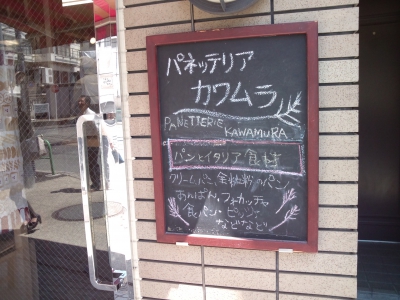 パネッテリア
カワムラ
PANETTERIE
KAWAMURA
パンとイタリア食材
クリームパン、全粒粉のパン
あんぱん、フォカッチャ
食パン・ピッツァ
などなど